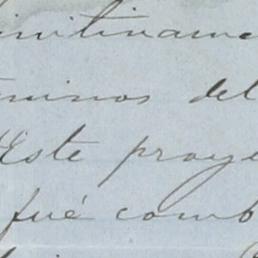 initivame
minos del
Este proye
fué comb